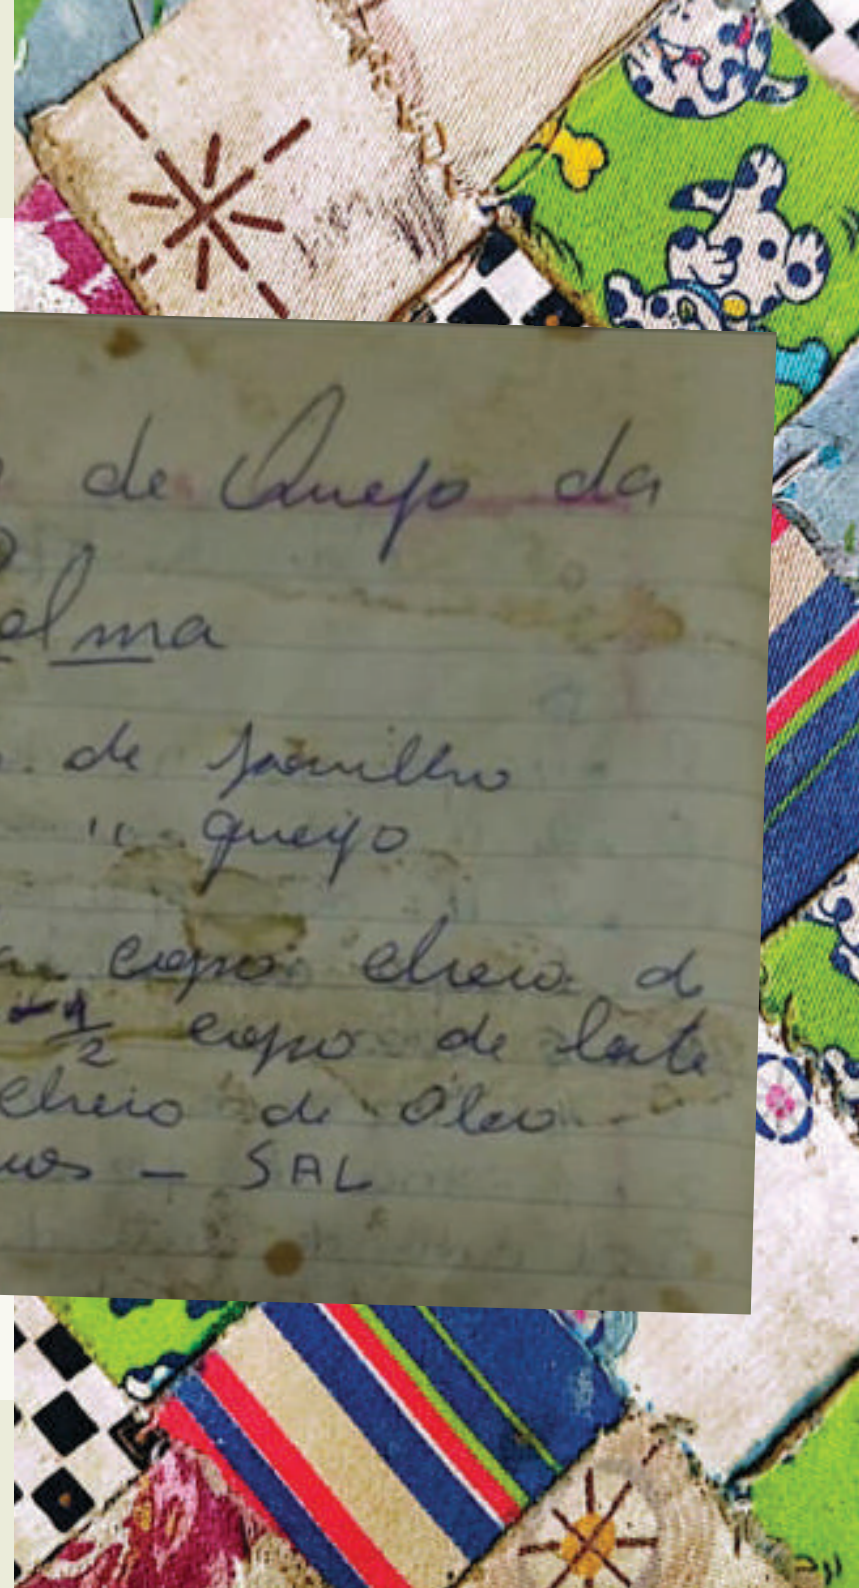 de Queijo da
elma
de polvilho
" " queijo
copo cheio d
1/2 copo de leite
cheio de óleo
— SAL